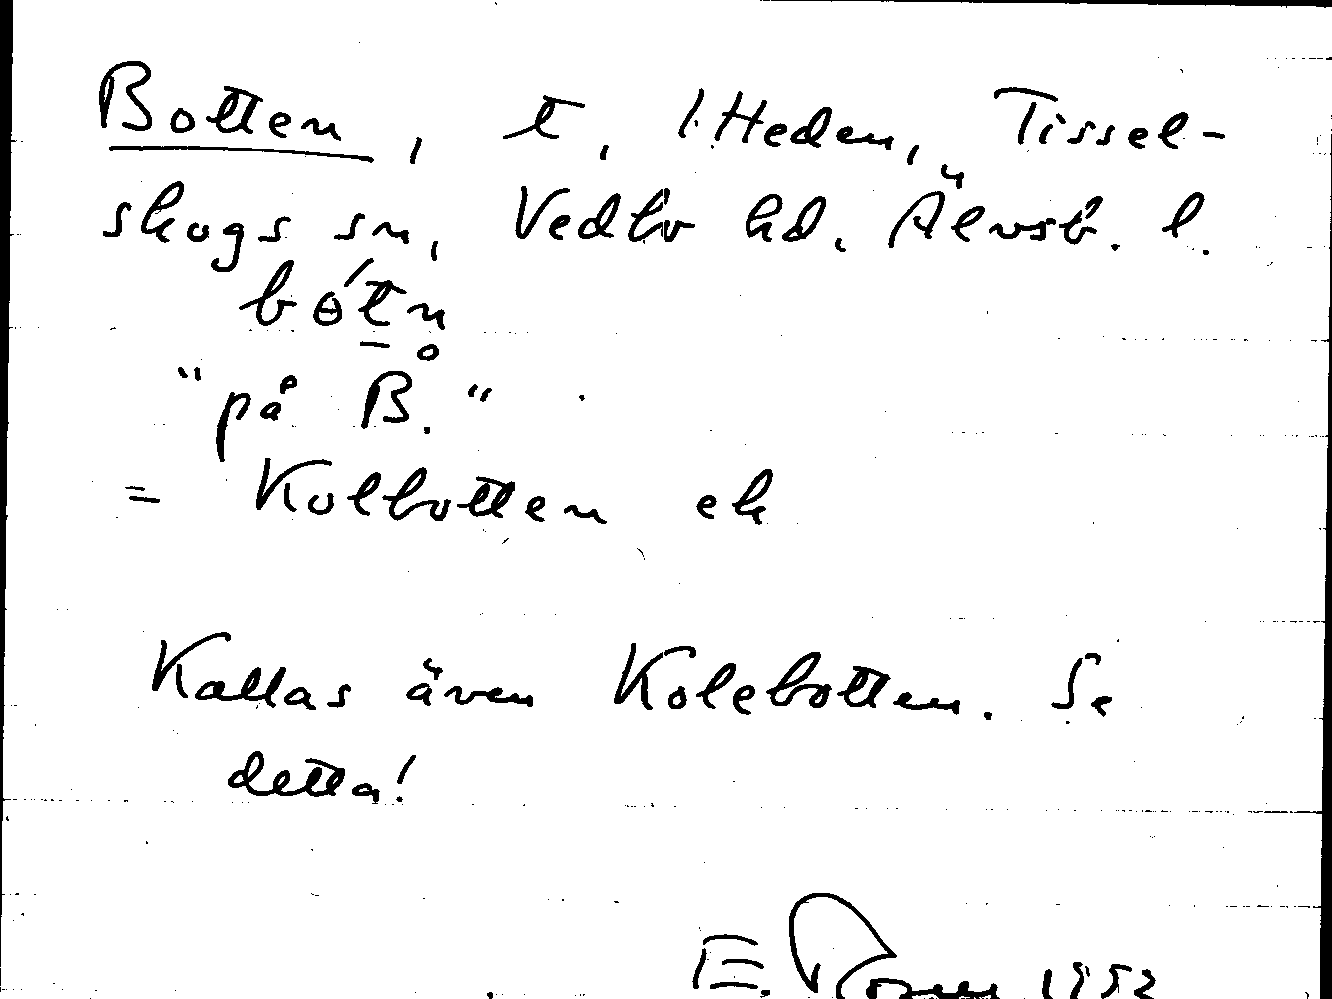 Botten, t, 1. Heden, Tissel-
skogs sn, Vedbo hd. Älvsb. l.
bɵ́t̲n̥
"på B."
= Kolbotten ek
Kallas även Kolebotten. Se
detta!
E. Rosén 1952